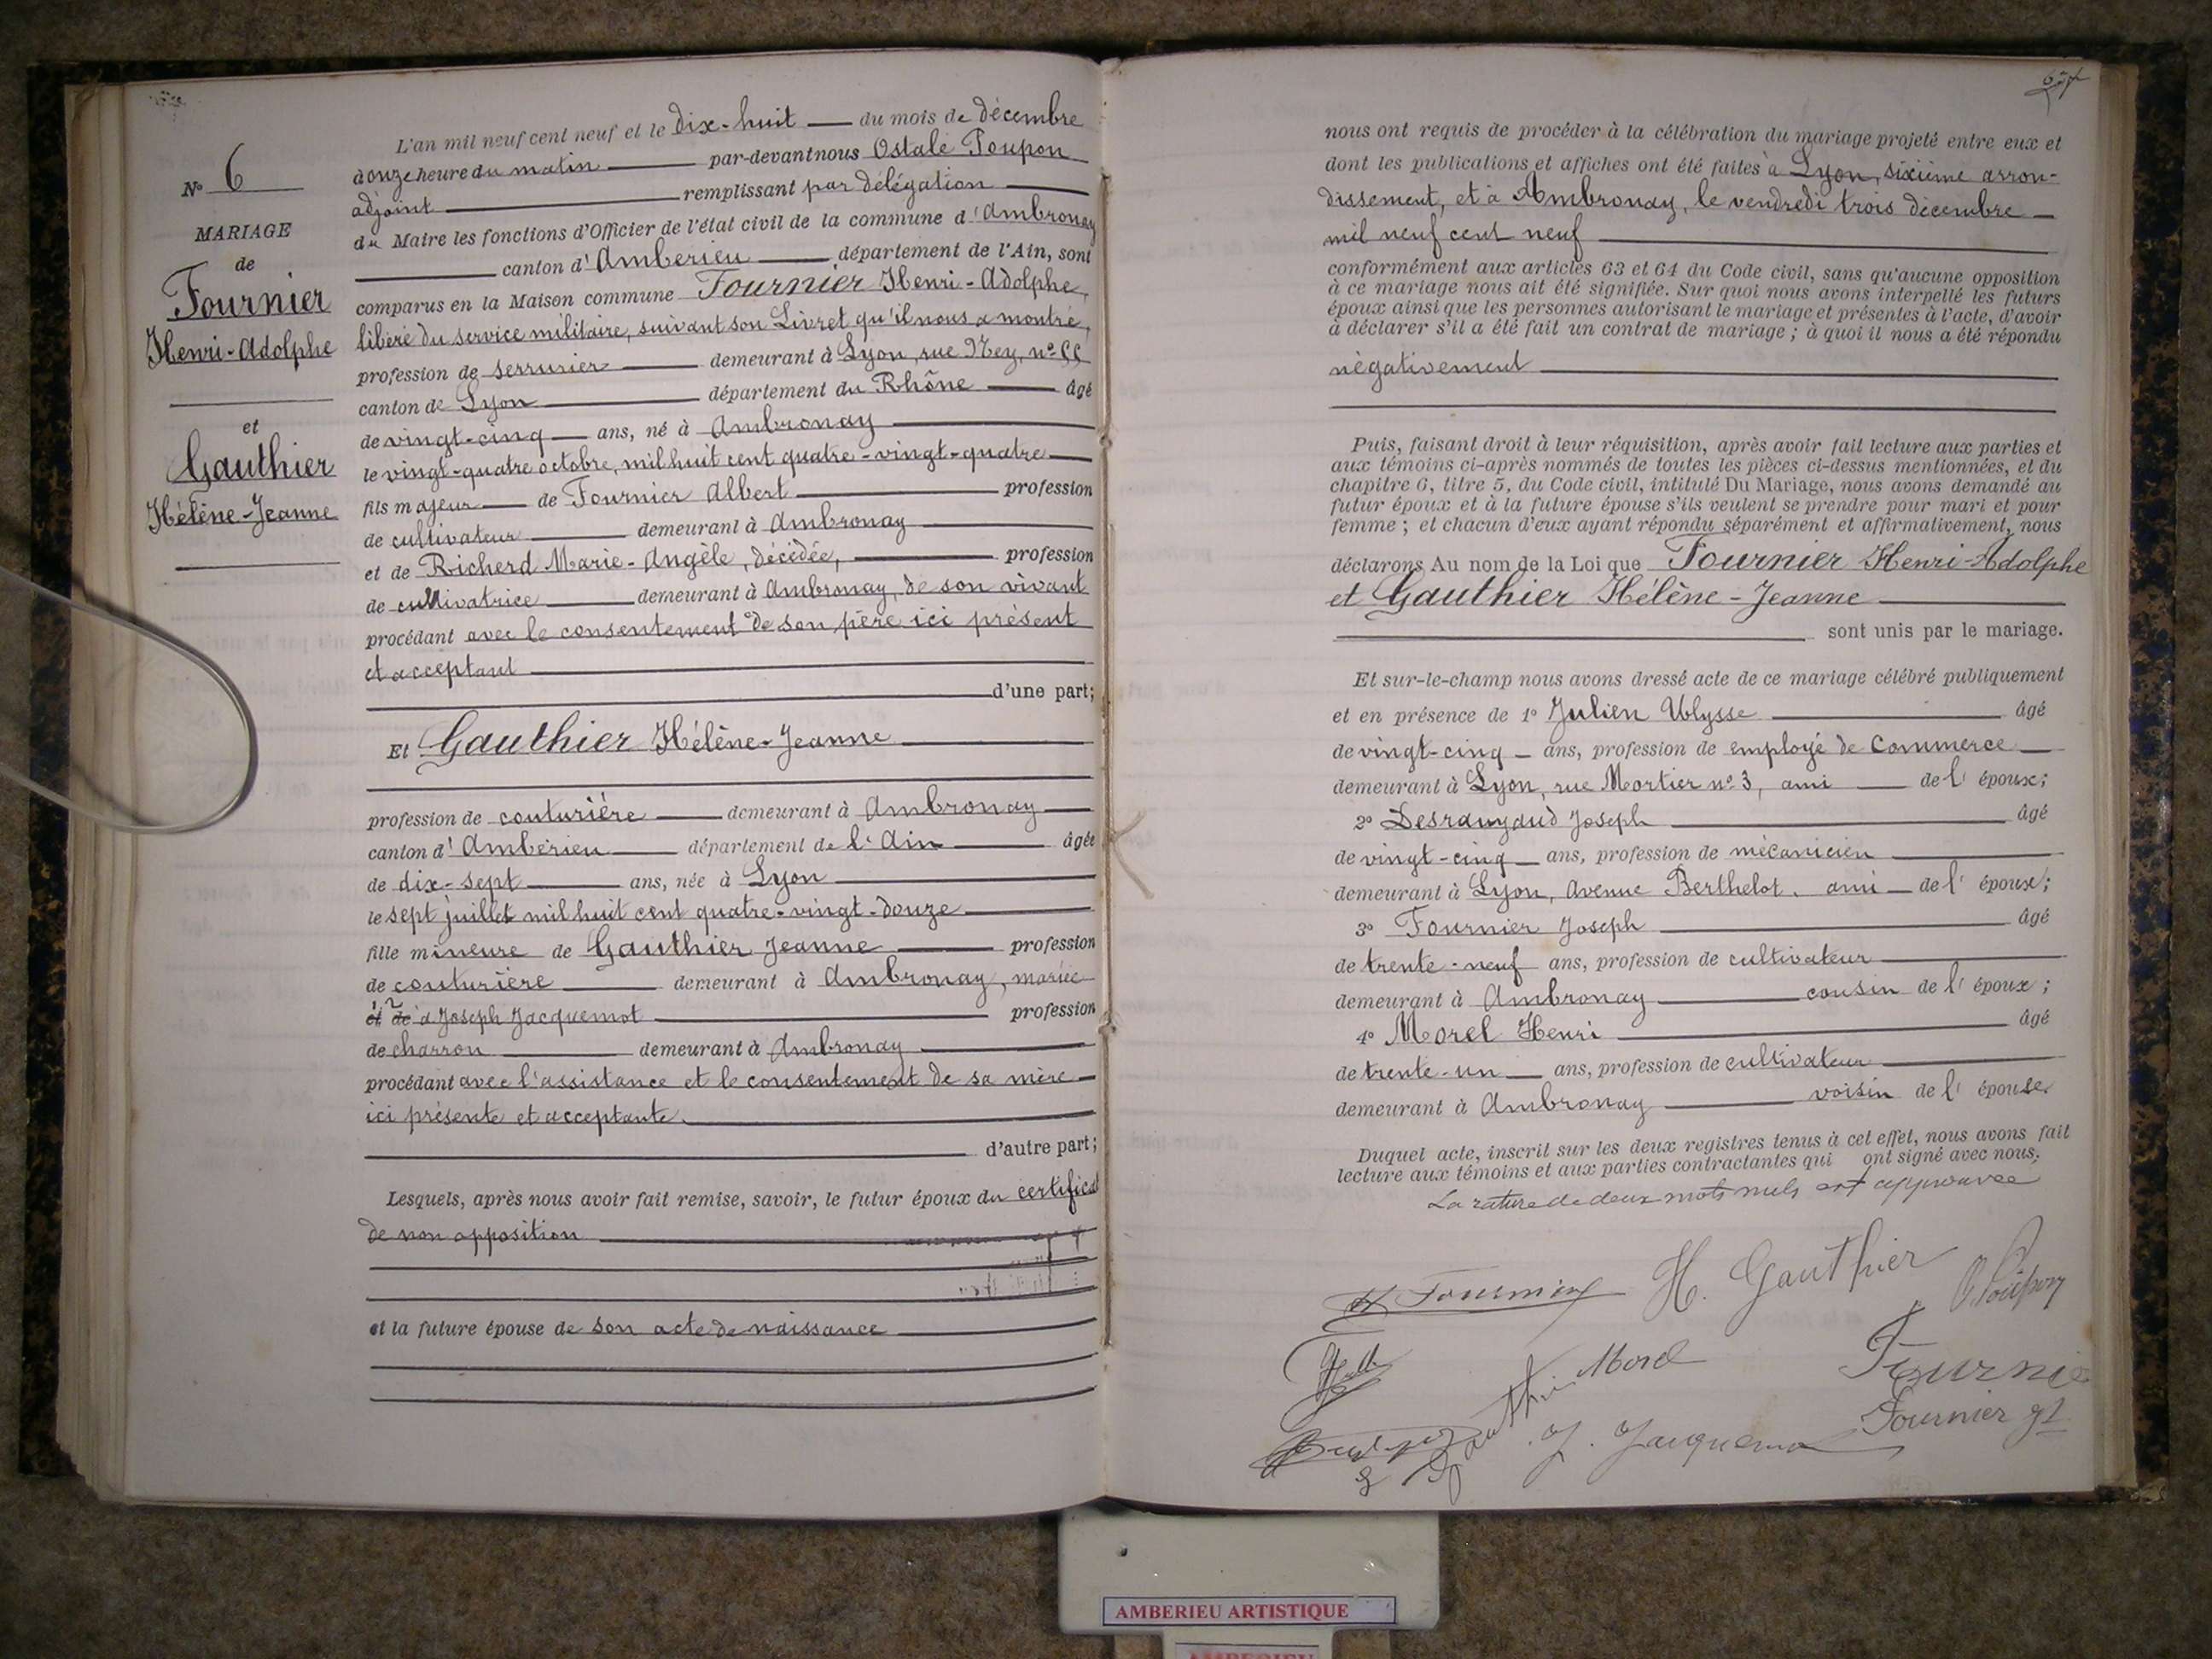 N° 6
MARIAGE
de
Fournier
Henri-Adolphe
et
Gauthier
Hélène-Jeanne
L'an mil neuf cent neuf et le dix-huit du mois de décembre
à onze heure du matin par-devant nous Ostale Poupon
adjoint remplissant par délégation
du Maire les fonctions d'Officier de l'état civil de la commune d'Ambronay
canton d'Ambérieu département de l'Ain, sont
comparus en la Maison commune Fournier Henri-Adolphe,
libéré du service militaire, suivant son Livret qu'il nous a montré,
profession de serrurier demeurant à Lyon, rue Ney, n°
canton de Lyon département du Rhône âgé
de vingt-cinq ans, né à Ambronay
le vingt-quatre octobre, mil huit cent quatre-vingt-quatre
fils majeur de Fournier Albert profession
de cultivateur demeurant à Ambronay
et de Richerd Marie-Angèle, décédée, profession
de cultivatrice demeurant à Ambronay, de son vivant
procédant avec le consentement de son père ici présent
et acceptant
d'une part;
Et Gauthier Hélène-Jeanne
profession de couturière demeurant à Ambronay
canton d'Ambérieu département de l'Ain âgée
de dix-sept ans, née à Lyon
le sept juillet mil huit cent quatre-vingt-douze
fille mineure de Gauthier Jeanne profession
de couturière demeurant à Ambronay, mariée
et de à Joseph Jacquemot profession
de charron demeurant à Ambronay
procédant avec l'assistance et le consentement de sa mère
ici présente et acceptante.
d'autre part;
Lesquels, après nous avoir fait remise, savoir, le futur époux du certificat
de non opposition
et la future épouse de son acte de naissance
nous ont requis de procéder à la célébration du mariage projeté entre eux et
dont les publications et affiches ont été faites à Lyon, sixième arron-
dissement, et à Ambronay, le vendredi trois décembre
mil neuf cent neuf
conformément aux articles 63 et 64 du Code civil, sans qu'aucune opposition
à ce mariage nous ait été signifiée. Sur quoi nous avons interpellé les futurs
époux ainsi que les personnes autorisant le mariage et présentes à l'acte, d'avoir
à déclarer s'il a été fait un contrat de mariage; à quoi il nous a été répondu
négativement
Puis, faisant droit à leur réquisition, après avoir fait lecture aux parties et
aux témoins ci-après nommés de toutes les pièces ci-dessus mentionnées, et du
chapitre 6, titre 5, du Code civil, intitulé Du Mariage, nous avons demandé au
futur époux et à la future épouse s'ils veulent se prendre pour mari et pour
femme; et chacun d'eux ayant répondu séparément et affirmativement, nous
déclarons Au nom de la Loi que Fournier Henri-Adolphe
et Gauthier Hélène-Jeanne
sont unis par le mariage.
Et sur-le-champ nous avons dressé acte de ce mariage célébré publiquement
et en présence de 1° Julien Ulysse âgé
de vingt-cinq ans, profession de employé de Commerce
demeurant à Lyon, rue Mortier n° 3, ami de l'époux;
2° Desrayaud Joseph âgé
de vingt-cinq ans, profession de mécanicien
demeurant à Lyon, Avenue Berthelot, ami de l'époux;
3° Fournier Joseph âgé
de trente-neuf ans, profession de cultivateur
demeurant à Ambronay cousin de l'époux;
4° Morel Henri âgé
de trente-un ans, profession de cultivateur
demeurant à Ambronay voisin de l'épouse.
Duquel acte, inscrit sur les deux registres tenus à cet effet, nous avons fait
lecture aux témoins et aux parties contractantes qui ont signé avec nous.
La rature de deux mots nuls est approuvée
H Fournier H. Gauthier O. Poupon
Morel Fournier
Gauthier J. Jacquemot Fournier
AMBERIEU ARTISTIQUE
AMBERIEU